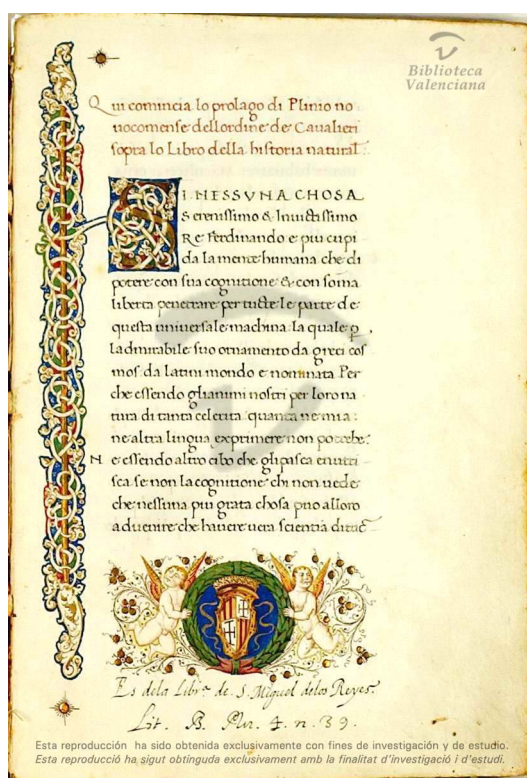 Biblioteca
Valenciana
Qui comincia lo prolago di Plinio no
uocomense dell ordine de Cavalieri
sopra lo Libro della historia natural
DI NESSVNA CHOSA
Serenissimo & Inuictissimo
Re Ferdinando e piu cupi
da la mente humana che di
potere con sua cognitione & con soma
liberta penetrare per tucte le parte de
questa uniuersale machina la quale p
ladmirabile suo ornamento da greci cos
mos da latini mondo e nominata Per
che essendo glianimi nostri per loro na
tura di tanta celerita quanta ne mia
ne altra lingua exprimere non potrebe
N e essendo altro cibo che gli pasca enutri
sca se non la cognitione chi non uede
che nessuna piu grata chosa puo alloro
aduenire che hauere uera scientia di tuct
Es dela Libr.ª de S. Miguel delos Reyes.
Lit. B. Plu. 4. n. 39.
Esta reproducción ha sido obtenida exclusivamente con fines de investigación y de estudio.
Esta reproducció ha sigut obtinguda exclusivament amb la finalitat d'investigació i d'estudi.